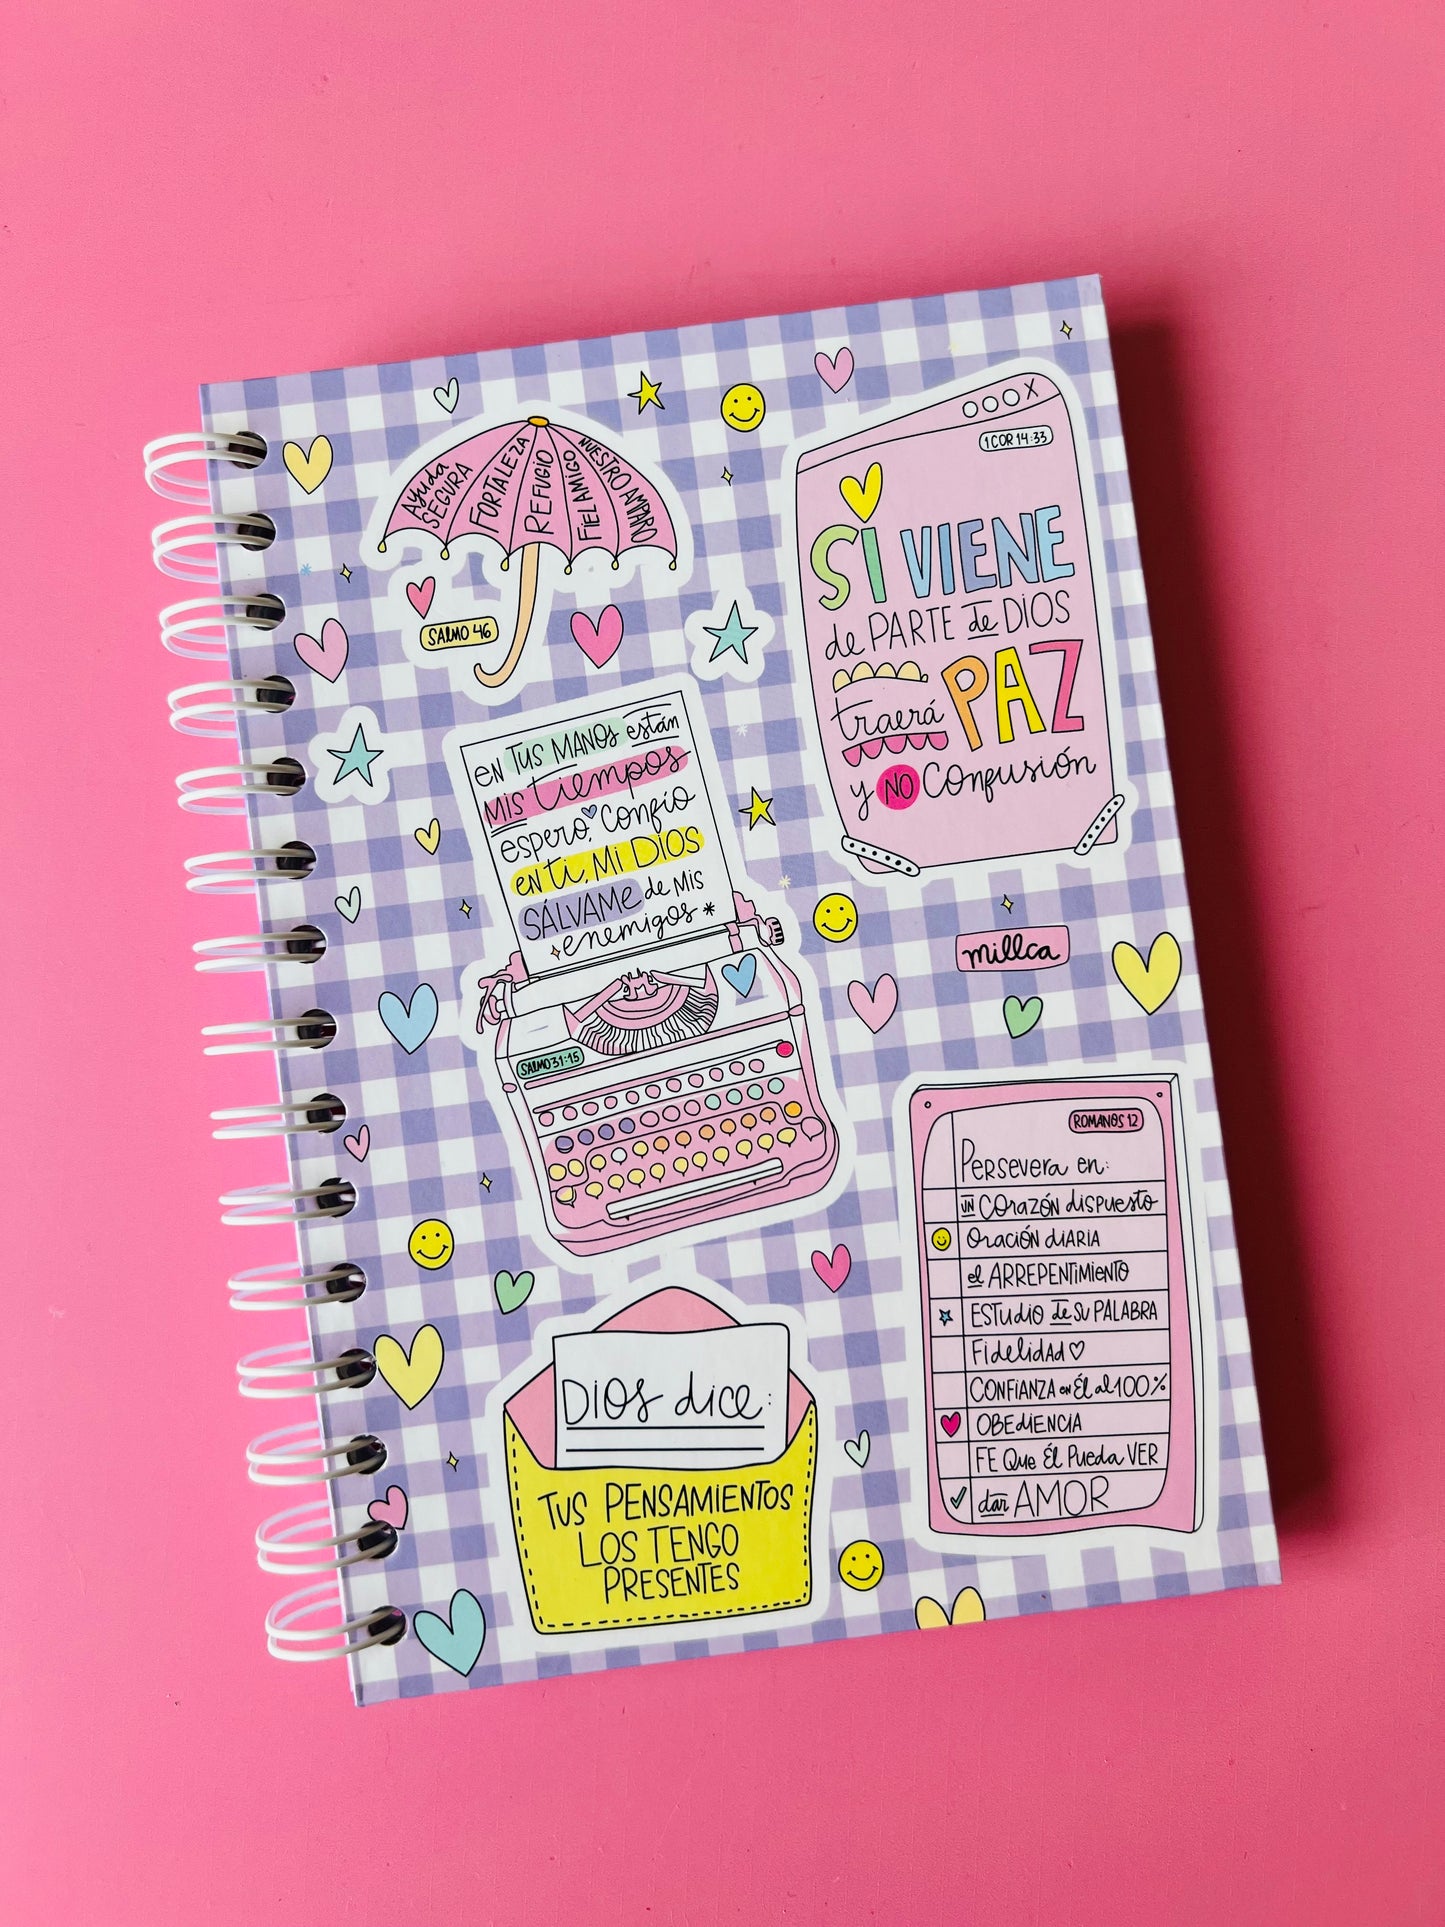 Ayuda
SEGURA
FORTALEZA
REFUGIO
FIEL AMIGO
NUESTRO AMPARO
SALMO 46
X
1 COR 14:33
SI VIENE
de PARTE de DIOS
traerá PAZ
y NO Confusión
EN TUS MANOS están
MIS tiempos
espero, Confío
EN ti, MI DIOS
SÁLVAME de MIS
enemigos *
SALMO 31:15
millca
ROMANOS 12
Persevera en:
UN Corazón dispuesto
Oración diARIA
el ARREPENTIMIENTO
ESTUDIO de SU PALABRA
FidelidAd
CONFIANZA en Él al 100%
OBEdIENCIA
FE Que Él Pueda VER
dar AMOR
DIOS dice:
TUS PENSAMIENTOS
LOS TENGO
PRESENTES